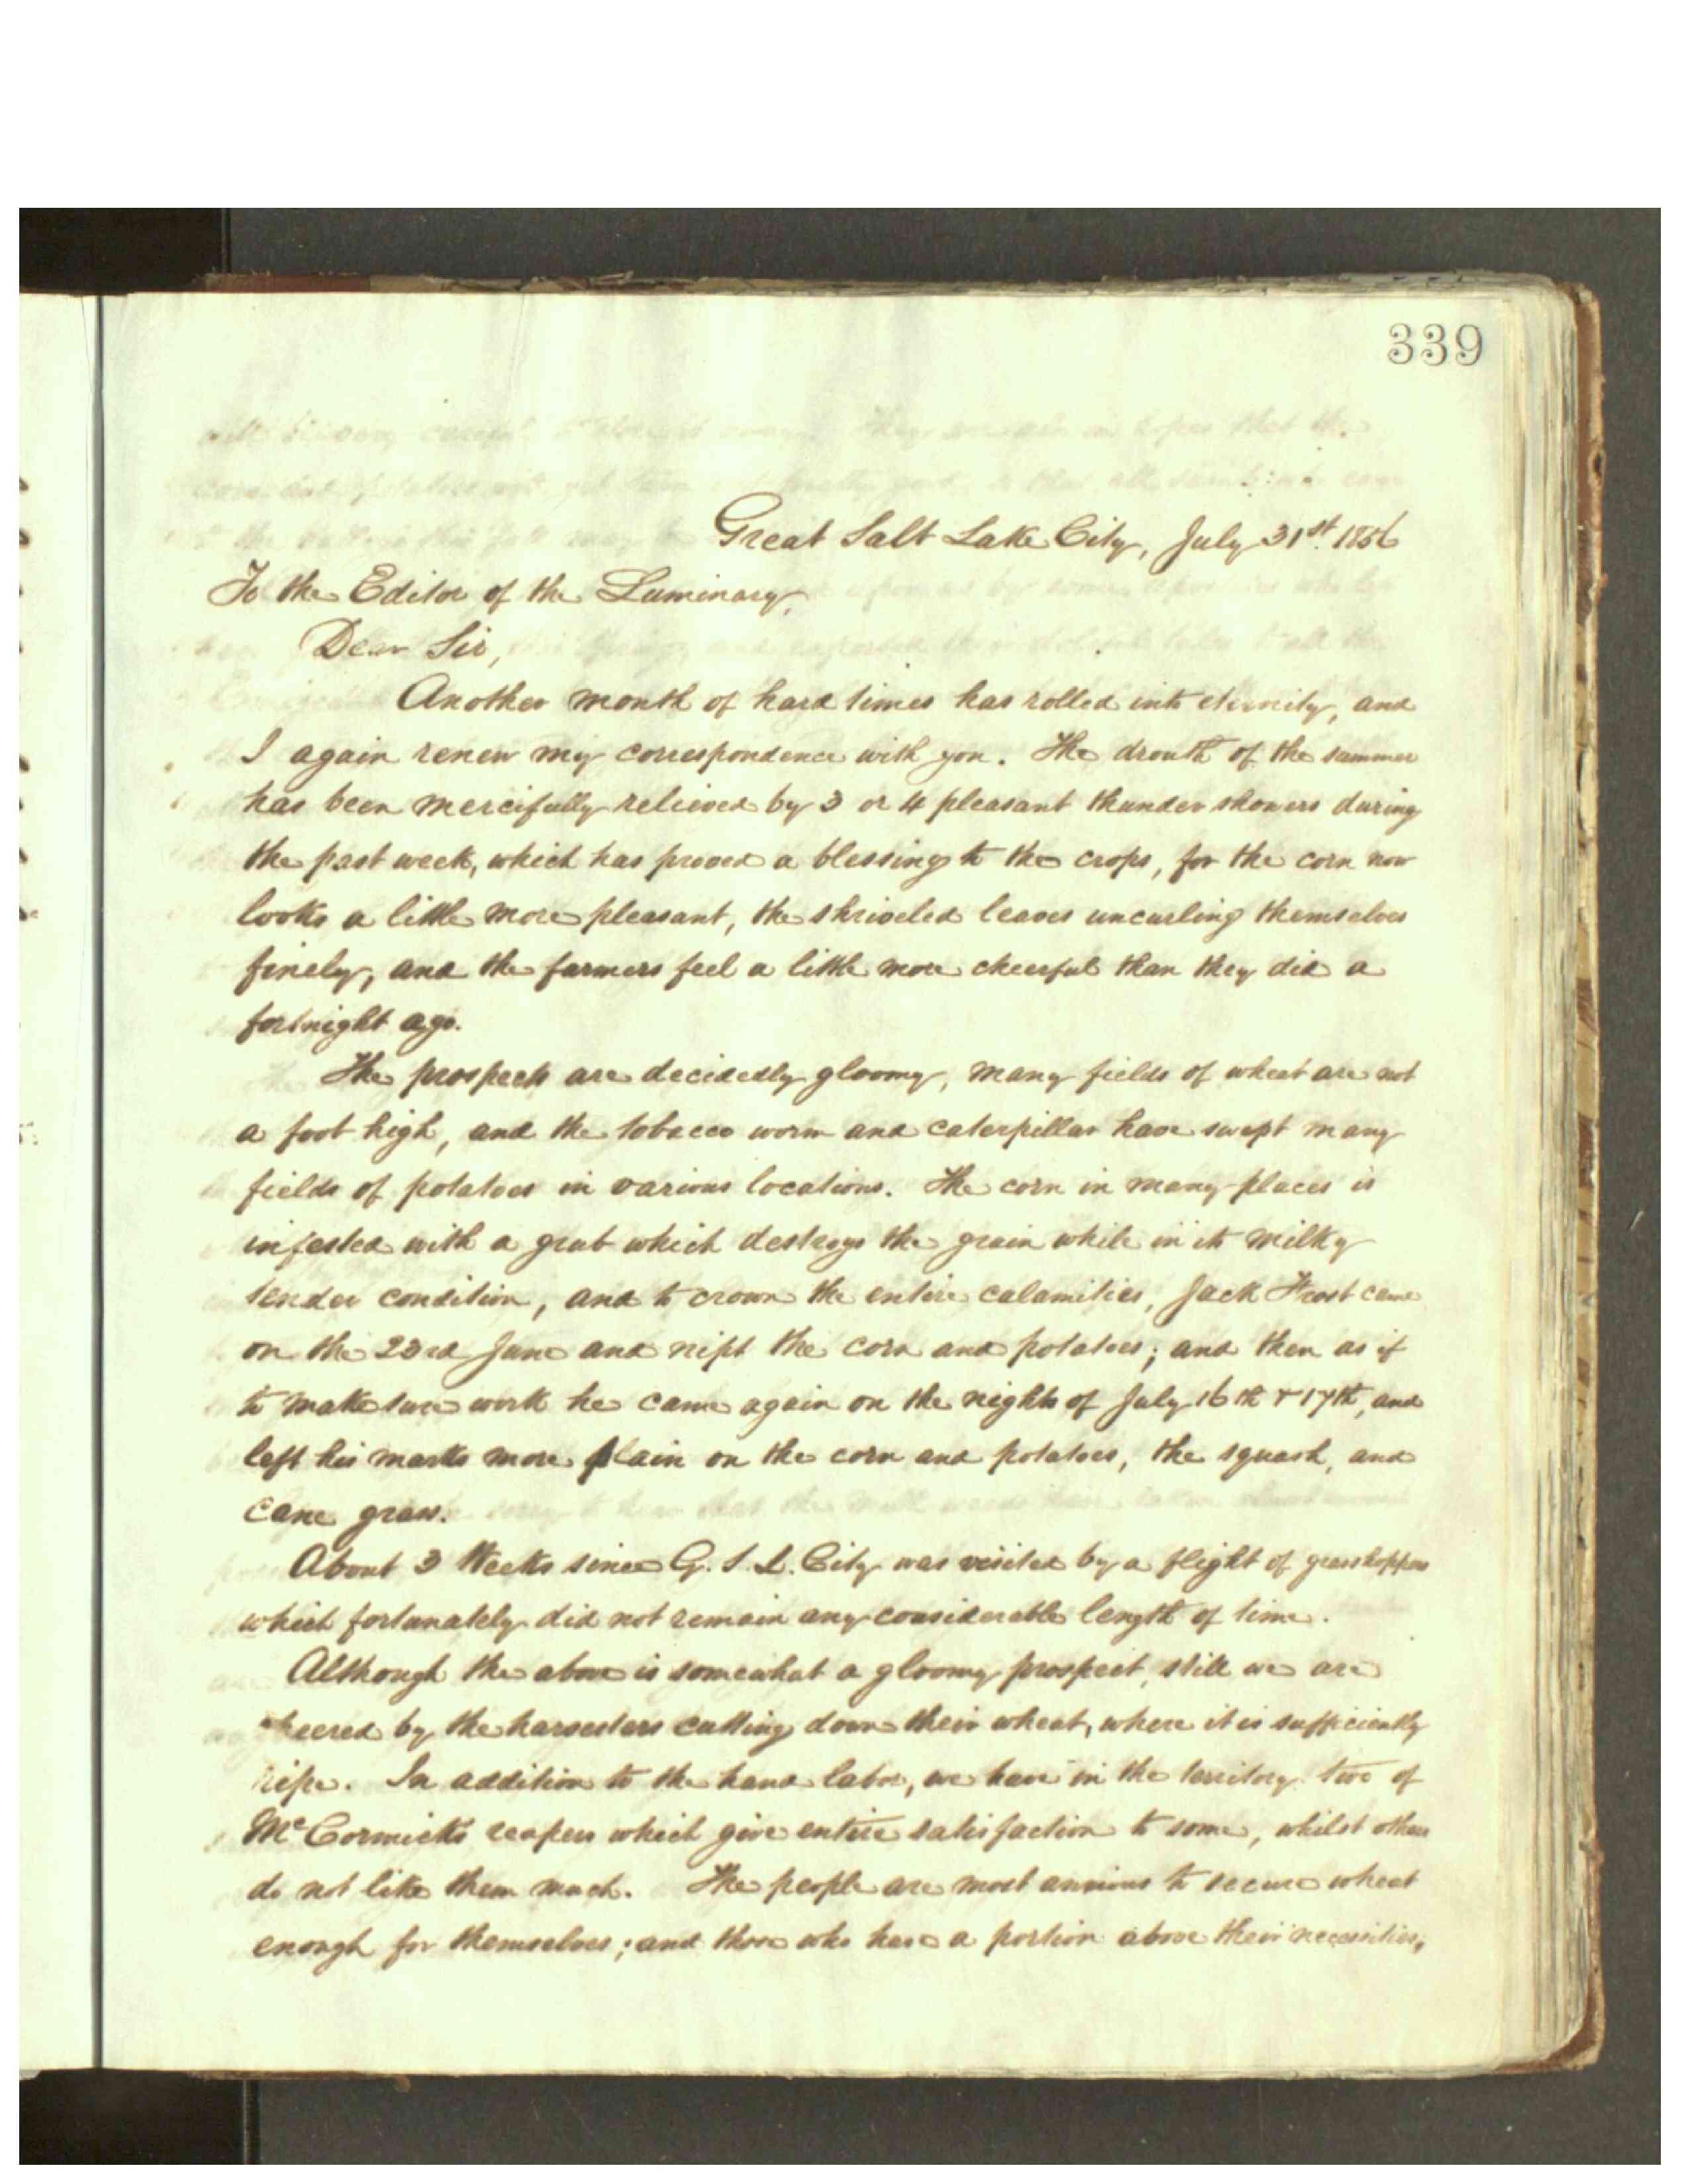 339
Great Salt Lake City, July 31st. 1856
To the Editor of the Luminary,
Dear Sir,
Another month of hard times has rolled into eternity, and
I again renew my correspondence with you. The drouth of the summer
has been mercifully relieved by 3 or 4 pleasant thunder showers during
the past week, which has proved a blessing to the crops, for the corn now
looks a little more pleasant, the shriveled leaves uncurling themselves
finely, and the farmers feel a little more cheerful than they did a
fortnight ago.
The prospects are decidedly gloomy, many fields of wheat are not
a foot high, and the tobacco worm and caterpillar have swept many
fields of potatoes in various locations. The corn in many places is
infested with a grub which destroys the grain while in its milky
tender condition, and to crown the entire calamities, Jack Frost came
on the 23rd June and nipt the corn and potatoes; and then as if
to make sure work he came again on the nights of July 16th & 17th, and
left his marks more plain on the corn and potatoes, the squash, and
cane grass.
About 3 Weeks since G. S. L. City was visited by a flight of grasshoppers
which fortunately did not remain any considerable length of time.
Although the above is somewhat a gloomy prospect, still we are
cheered by the harvesters cutting down their wheat, where it is sufficiently
ripe. In addition to the hand labor, we have in the territory two of
McCormick's reapers which give entire satisfaction to some, whilst others
do not like them much. The people are most anxious to secure wheat
enough for themselves; and those who have a portion above their necessities,